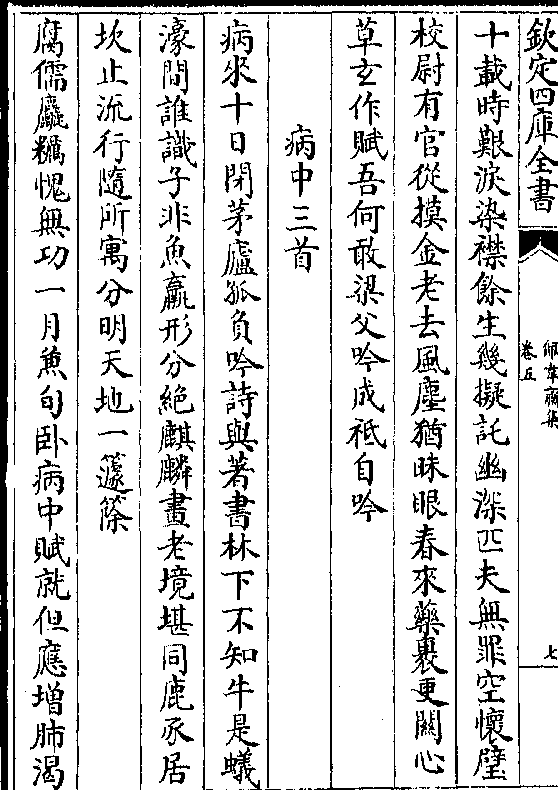 欽定四庫全書
佩韋齋集
卷五
七
十載時艱淚染襟餘生幾擬託幽深匹夫無罪空懷璧
校尉有官從摸金老去風塵猶眯眼春來藥裹更關心
草玄作賦吾何敢梁父吟成祗自吟
病中三首
病來十日閉茅廬孤負吟詩與著書林下不知牛是蟻
濠間誰識子非魚羸形分絶麒麟畫老境堪同鹿豕居
坎止流行隨所寓分明天地一籧篨
腐儒麤糲愧無功一月兼旬卧病中賦就但應增肺渴